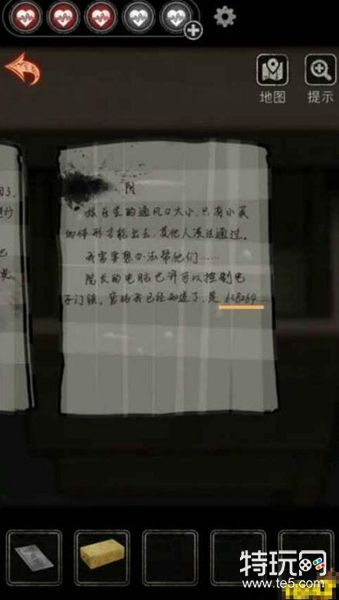 地图
提示
阴
娱乐室的通风口太小,只有小英
的体形才能出去,其他人没法通过。
我需要想办法帮他们……
院长的电脑也许可以控制电
子门锁。密码我已经知道了,是
特玩网
www.te5.com